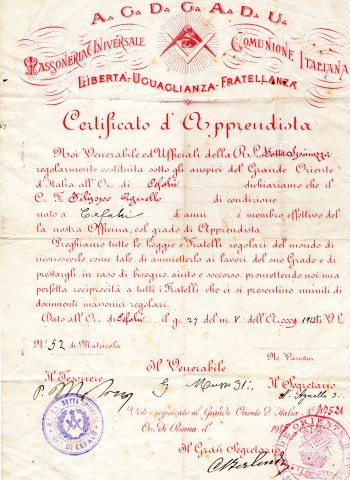 A∴ G∴ D∴ G∴ A∴ D∴ U∴
Massoneria Universale Comunione Italiana
Libertà - Uguaglianza - Fratellanza
Certificato d'Apprendista
Noi Venerabile ed Ufficiali della R∴ L∴
regolarmente costituita sotto gli auspici del Grande Oriente
d'Italia all'Or∴ di Cefalù dichiariamo che il
C. F. Filippo Agnello di condizione
nato a Cefalù d'anni è membro effettivo del
la nostra Officina, col grado di Apprendista.
Preghiamo tutte le Loggie e Fratelli regolari del mondo di
riconoscerlo come tale di ammetterlo ai lavori del suo Grado e di
prestargli, in caso di bisogno, aiuto e soccorso, promettendo noi una
perfetta reciprocità a tutti i Fratelli che ci si presentino muniti di
documenti massonici regolari.
Dato all'Or∴ di Cefalù il g∴ 27 del m∴ V dell'A∴ V∴ L∴
N° 52 di Matricola
Il Venerabile
Il Tesoriere Il Segretario
Visto e registrato al Grande Oriente d'Italia
Or∴ di Roma il 19
Il Gran Segretario